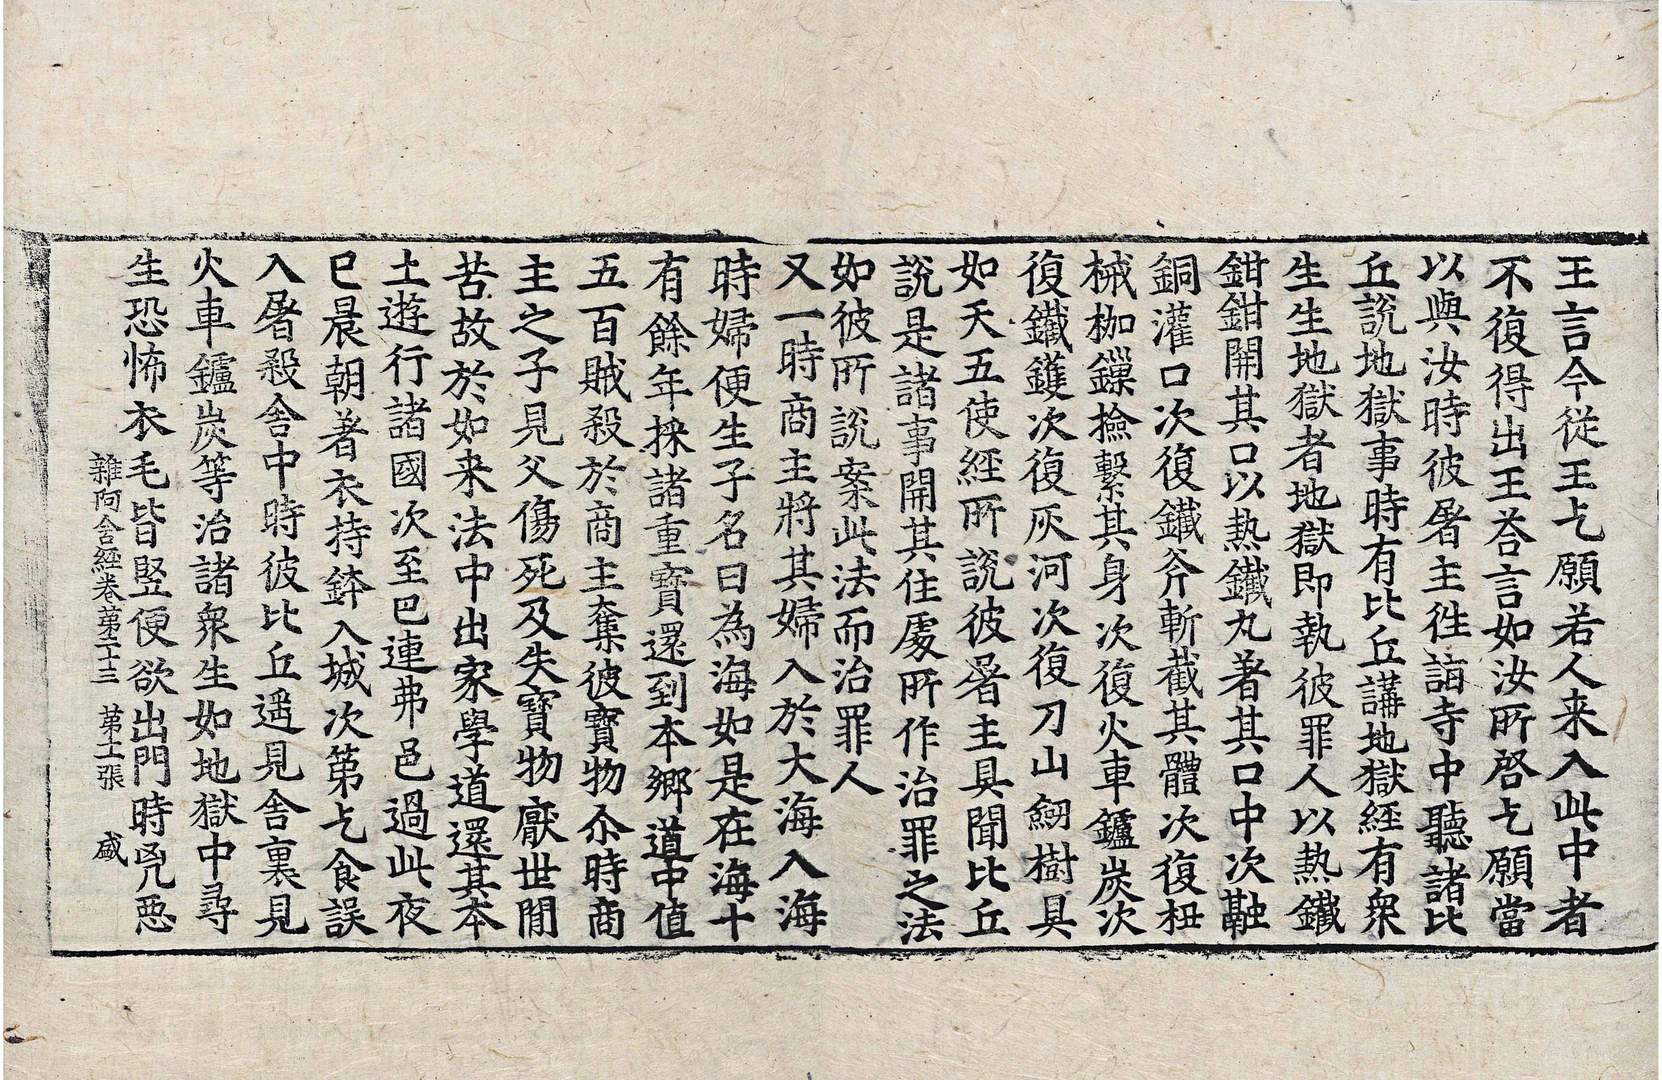 王言今從王乞願若人来入此中者
不復得出王荅言如汝所啓乞願當
以與汝時彼屠主徃詣寺中聽諸比
丘說地獄事時有比丘講地獄經有衆
生生地獄者地獄即執彼罪人以熱鐵
鉗鉗開其口以熱鐵丸著其口中次融
銅灌口次復鐵斧斬截其體次復杻
械枷鏁撿繫其身次復火車鑪炭次
復鐵鑊次復灰河次復刀山劒樹具
如天五使經所說彼屠主具聞比丘
說是諸事開其住處所作治罪之法
如彼所說案此法而治罪人
又一時商主將其婦入於大海入海
時婦便生子名曰為海如是在海十
有餘年採諸重寶還到本鄉道中值
五百賊殺於商主奪彼寶物尒時商
主之子見父傷死及失寶物厭世間
苦故於如来法中出家學道還其本
土遊行諸國次至巴連弗邑過此夜
已晨朝著衣持鉢入城次第乞食誤
入屠殺舍中時彼比丘遥見舍裏見
火車鑪炭等治諸衆生如地獄中尋
生恐怖衣毛皆竪便欲出門時兇惡
雜阿含經卷第二十三 第十二張 盛